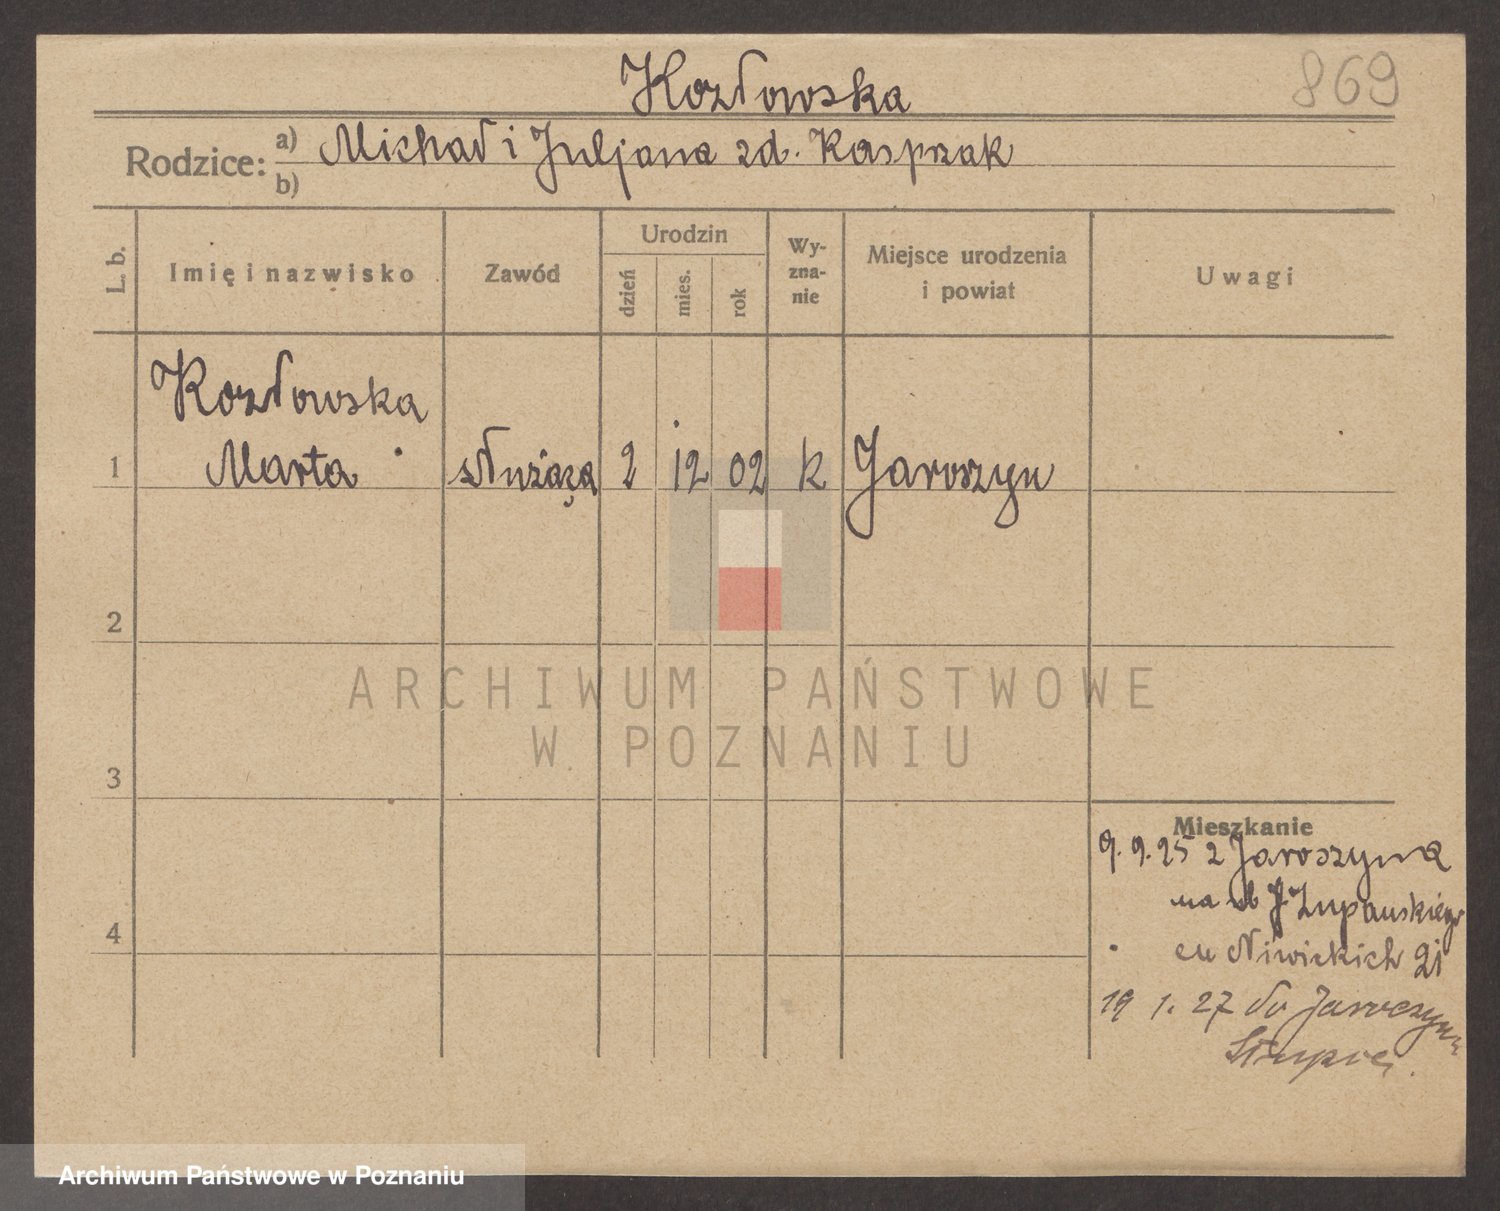 Kozłowska
869
Rodzice: a) Michał i Juljana zd. Kasprzak
b)
L. b. Imię i nazwisko Zawód Urodzin dzień mies. rok Wyzna-nie Miejsce urodzenia i powiat Uwagi
Kozłowska
1 Marta służąca 2 12 02 k Jaroszyn
2
3
4
ARCHIWUM PAŃSTWOWE
W POZNANIU
Mieszkanie
9. 9. 25 z Jaroszyna
na ub
21
19 1. 27 do
Słupcę.
Archiwum Państwowe w Poznaniu